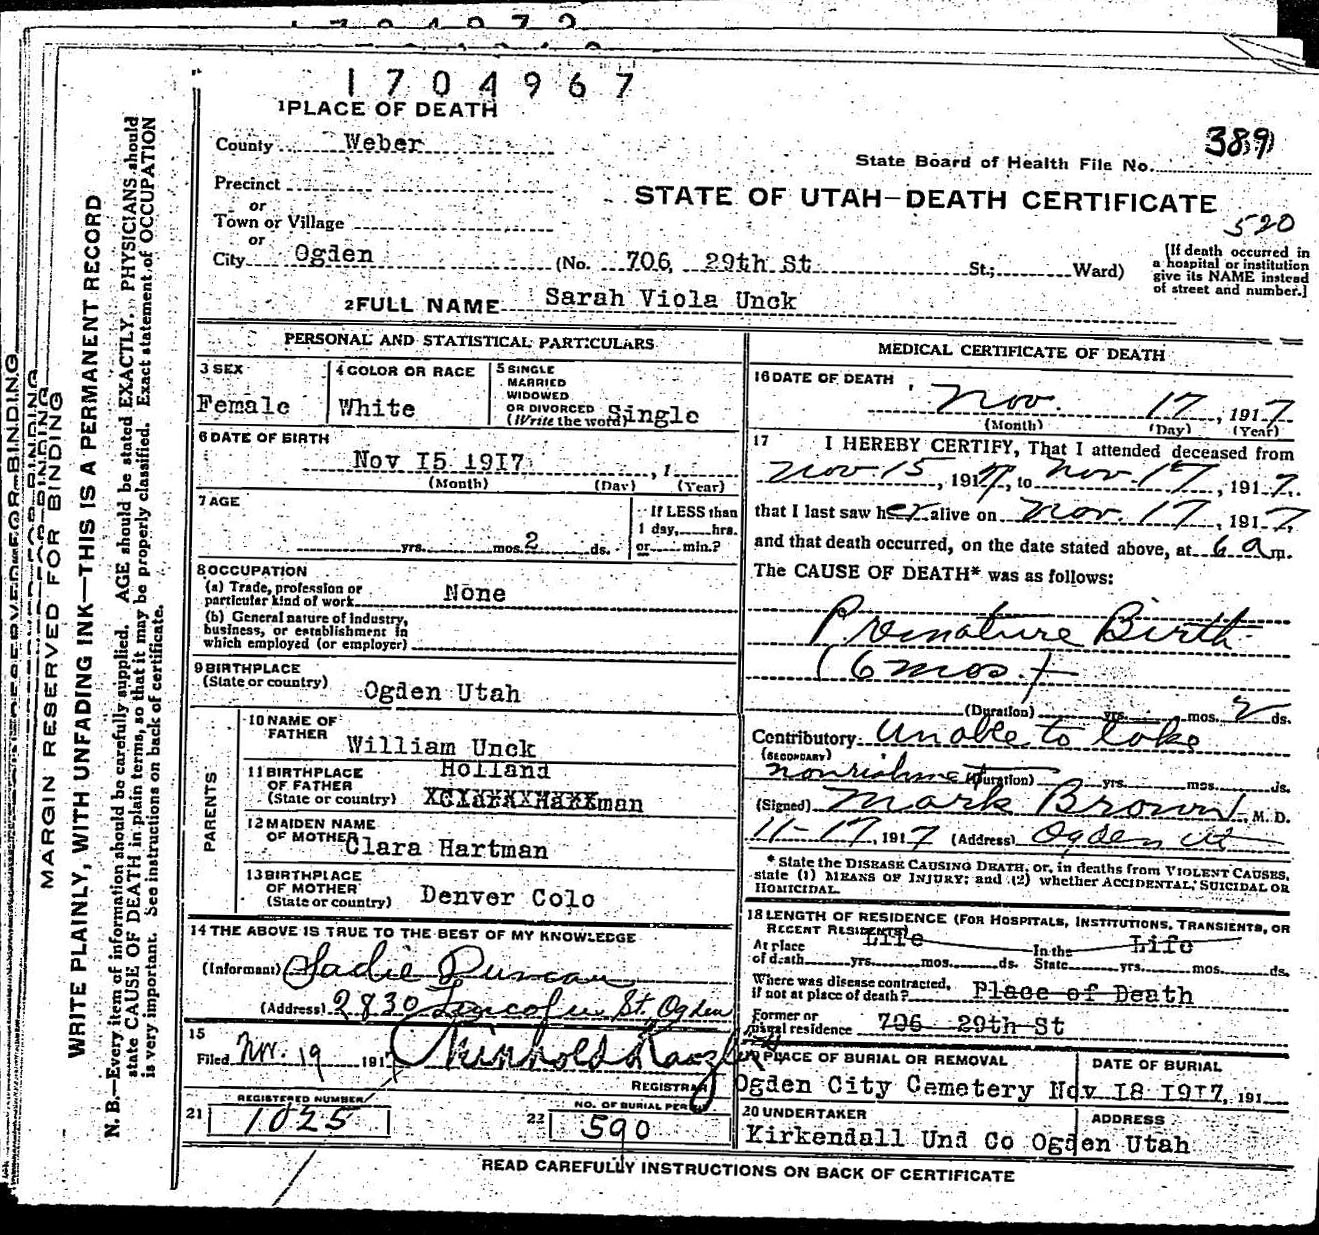 1704967
1 PLACE OF DEATH
County Weber
State Board of Health File No. 389
Precinct
or
STATE OF UTAH—DEATH CERTIFICATE
Town or Village
520
or
City Ogden (No. 706 29th St St.; Ward)
[If death occurred in
a hospital or institution
give its NAME instead
of street and number.]
2 FULL NAME Sarah Viola Unck
PERSONAL AND STATISTICAL PARTICULARS
3 SEX
Female
4 COLOR OR RACE
White
5 SINGLE
MARRIED
WIDOWED
OR DIVORCED
(Write the word) Single
6 DATE OF BIRTH
Nov I5 I9I7, 1
(Month) (Day) (Year)
7 AGE
yrs. mos. 2 ds.
If LESS than
1 day, hrs.
or min.?
8 OCCUPATION
(a) Trade, profession or
particular kind of work None
(b) General nature of industry,
business, or establishment in
which employed (or employer)
9 BIRTHPLACE
(State or country) Ogden Utah
PARENTS
10 NAME OF
FATHER
William Unck
11 BIRTHPLACE
OF FATHER
(State or country)
Holland
man
12 MAIDEN NAME
OF MOTHER
Clara Hartman
13 BIRTHPLACE
OF MOTHER
(State or country) Denver Colo
14 THE ABOVE IS TRUE TO THE BEST OF MY KNOWLEDGE
(Informant) Sadie Duncan
(Address) 2830 Lincoln St, Ogden
15
Filed Nov. 19 1917 Reinhold Kanzler
REGISTRAR
REGISTERED NUMBER
21 1025
NO. OF BURIAL PERMIT
22 590
MEDICAL CERTIFICATE OF DEATH
16 DATE OF DEATH
Nov. 17, 1917
(Month) (Day) (Year)
17 I HEREBY CERTIFY, That I attended deceased from
Nov 15, 1917, to Nov. 17, 1917.
that I last saw her alive on Nov. 17, 1917,
and that death occurred, on the date stated above, at 6 am.
The CAUSE OF DEATH* was as follows:
Premature Birth
(6 mos.)
(Duration) yrs. mos. 2 ds.
Contributory Unable to take
(SECONDARY)
nourishment (Duration) yrs. mos. ds.
(Signed) Mark Brown, M. D.
11-17, 1917 (Address) Ogden Ut
* State the DISEASE CAUSING DEATH, or, in deaths from VIOLENT CAUSES,
state (1) MEANS OF INJURY; and (2) whether ACCIDENTAL, SUICIDAL OR
HOMICIDAL.
18 LENGTH OF RESIDENCE (FOR HOSPITALS, INSTITUTIONS, TRANSIENTS, OR
RECENT RESIDENTS)
At place Life In the Life
of death yrs. mos. ds. State yrs. mos. ds.
Where was disease contracted,
if not at place of death? Place of Death
Former or
usual residence 706 29th St
19 PLACE OF BURIAL OR REMOVAL
Ogden City Cemetery
DATE OF BURIAL
Nov I8 I9I7, 191
20 UNDERTAKER
Kirkendall Und Co
ADDRESS
Ogden Utah
READ CAREFULLY INSTRUCTIONS ON BACK OF CERTIFICATE
MARGIN RESERVED FOR BINDING
WRITE PLAINLY, WITH UNFADING INK—THIS IS A PERMANENT RECORD
N. B.—Every item of information should be carefully supplied. AGE should be stated EXACTLY. PHYSICIANS should
state CAUSE OF DEATH in plain terms, so that it may be properly classified. Exact statement of OCCUPATION
is very important. See instructions on back of certificate.